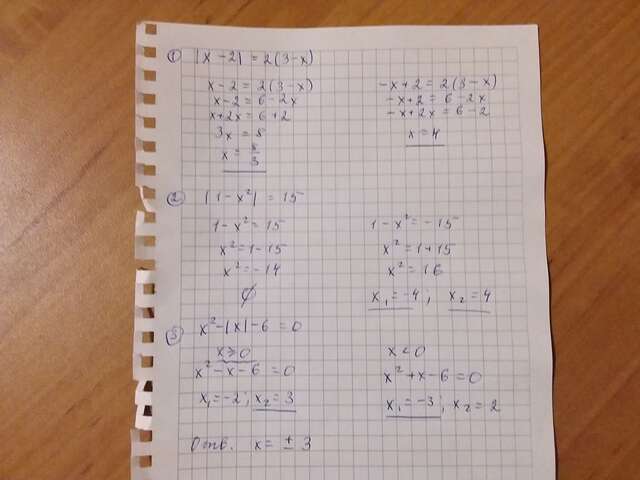 ① |x-2| = 2(3-x)
x-2 = 2(3-x)
x-2 = 6-2x
x+2x = 6+2
3x = 8
x = 8/3
-x+2 = 2(3-x)
-x+2 = 6-2x
-x+2x = 6-2
x = 4
② |1-x²| = 15
1-x² = 15
x² = 1-15
x² = -14
∅
1-x² = -15
x² = 1+15
x² = 16
x₁ = -4; x₂ = 4
③ x²-|x|-6 = 0
x ≥ 0
x²-x-6 = 0
x₁ = -2; x₂ = 3
x < 0
x²+x-6 = 0
x₁ = -3; x₂ = 2
Отв. x = ± 3